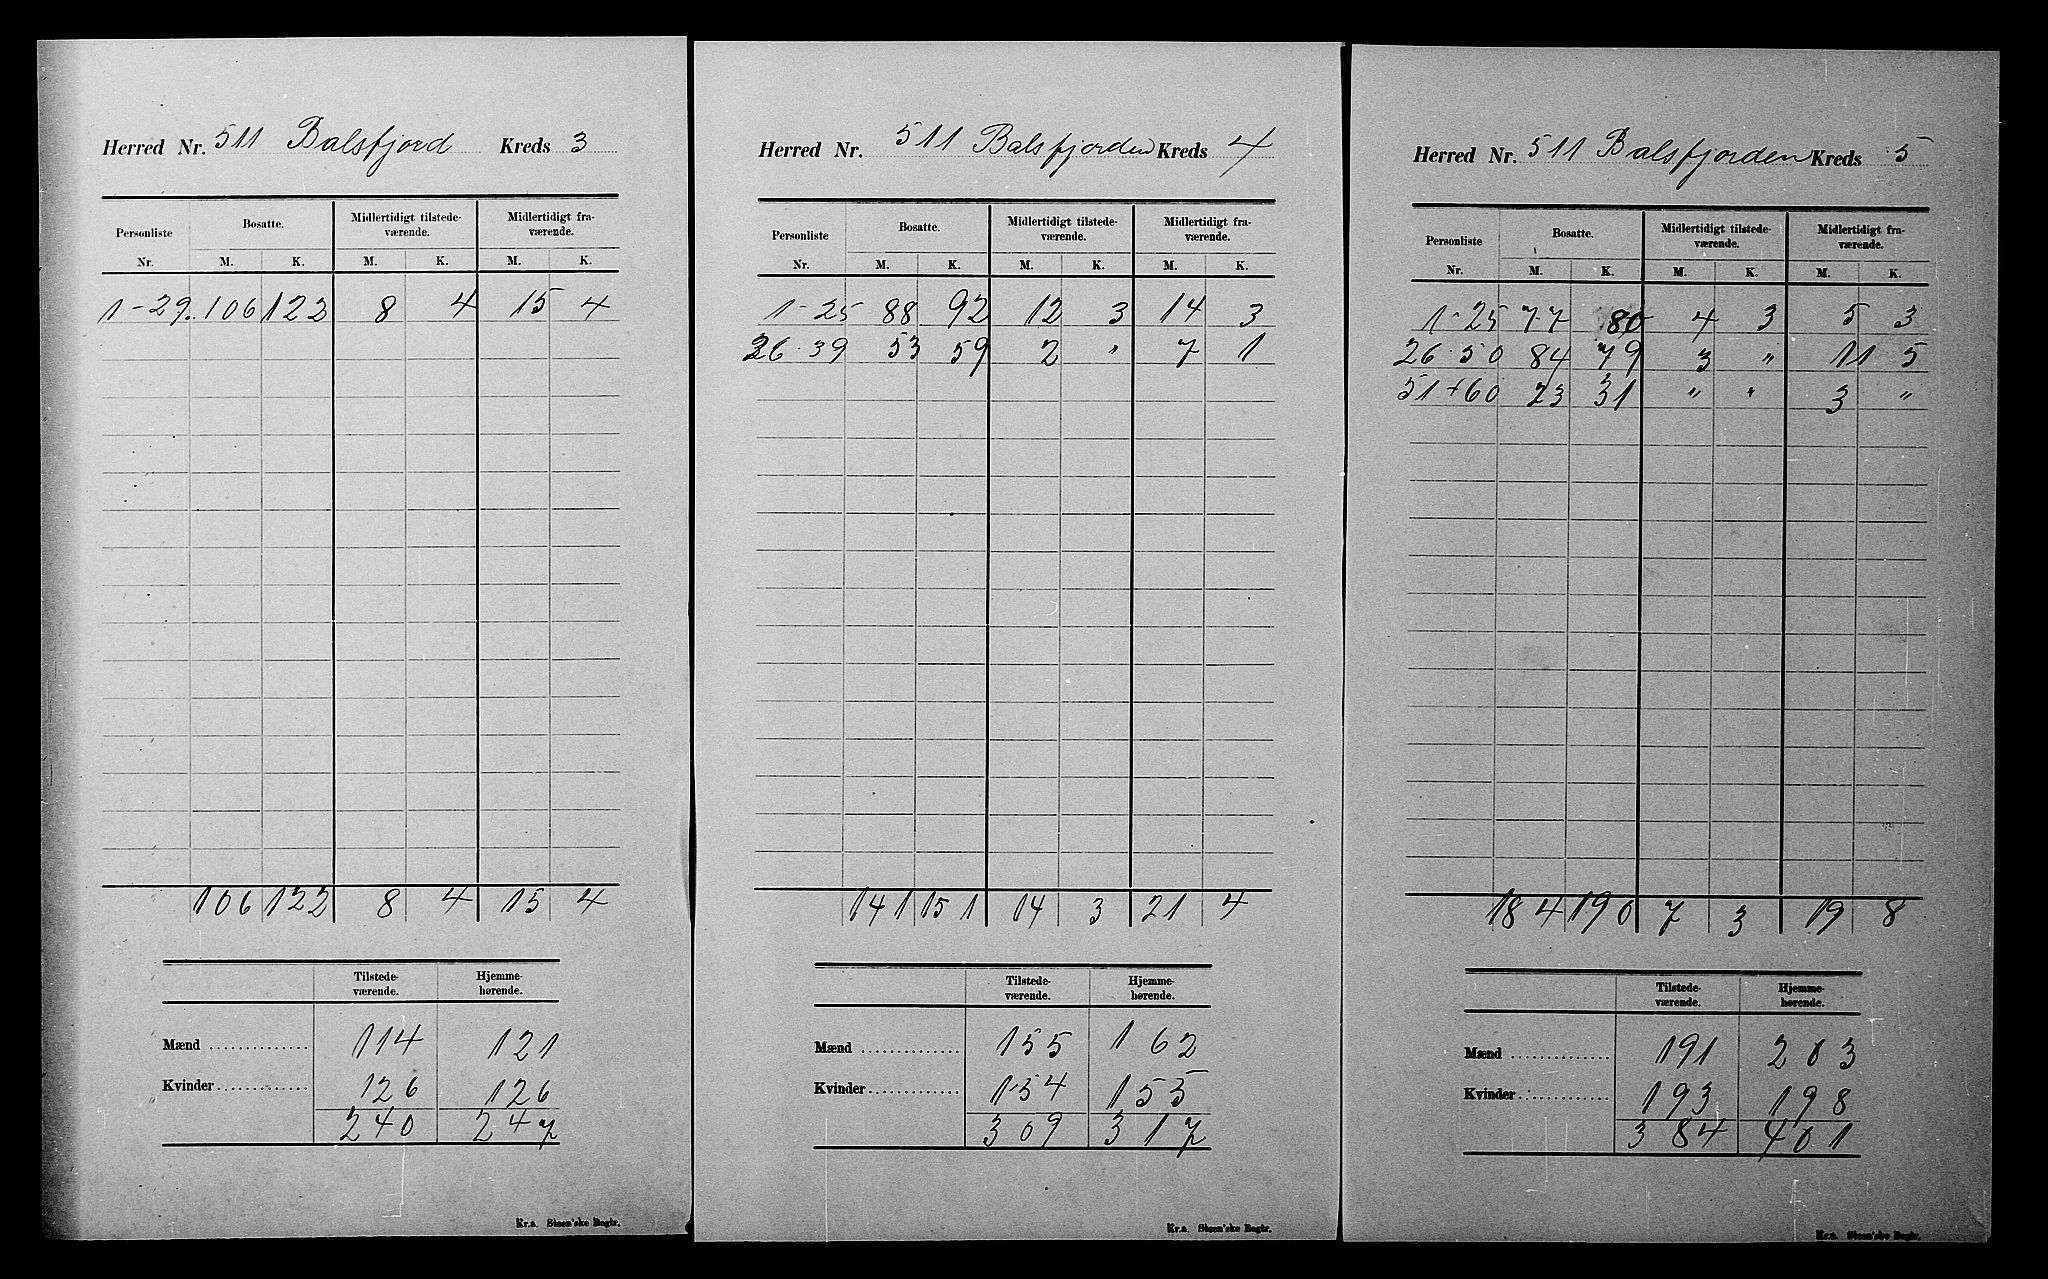 Herred Nr. 511 Balsfjord Kreds 3
Personliste Bosatte. Midlertidigt tilstede- Midlertidigt fra-
værende. værende.
Nr. M. K. M. K. M. K.
1-29. 106 122 8 4 15 4
106 122 8 4 15 4
Tilstede- Hjemme-
værende. hørende.
Mænd 114 121
Kvinder 126 126
240 247
Kr.a. Steen'ske Bogtr.
Herred Nr. 511 Balsfjorden Kreds 4
Personliste Bosatte. Midlertidigt tilstede- Midlertidigt fra-
værende. værende.
Nr. M. K. M. K. M. K.
1-25 88 92 12 3 14 3
26-39 53 59 2 " 7 1
141 151 14 3 21 4
Tilstede- Hjemme-
værende. hørende.
Mænd 155 162
Kvinder 154 155
309 317
Kr.a. Steen'ske Bogtr.
Herred Nr. 511 Balsfjorden Kreds 5
Personliste Bosatte. Midlertidigt tilstede- Midlertidigt fra-
værende. værende.
Nr. M. K. M. K. M. K.
1-25 77 80 4 3 5 3
26-50 84 79 3 " 11 5
51+60 23 31 " " 3 "
184 190 7 3 19 8
Tilstede- Hjemme-
værende. hørende.
Mænd 191 203
Kvinder 193 198
384 401
Kr.a. Steen'ske Bogtr.